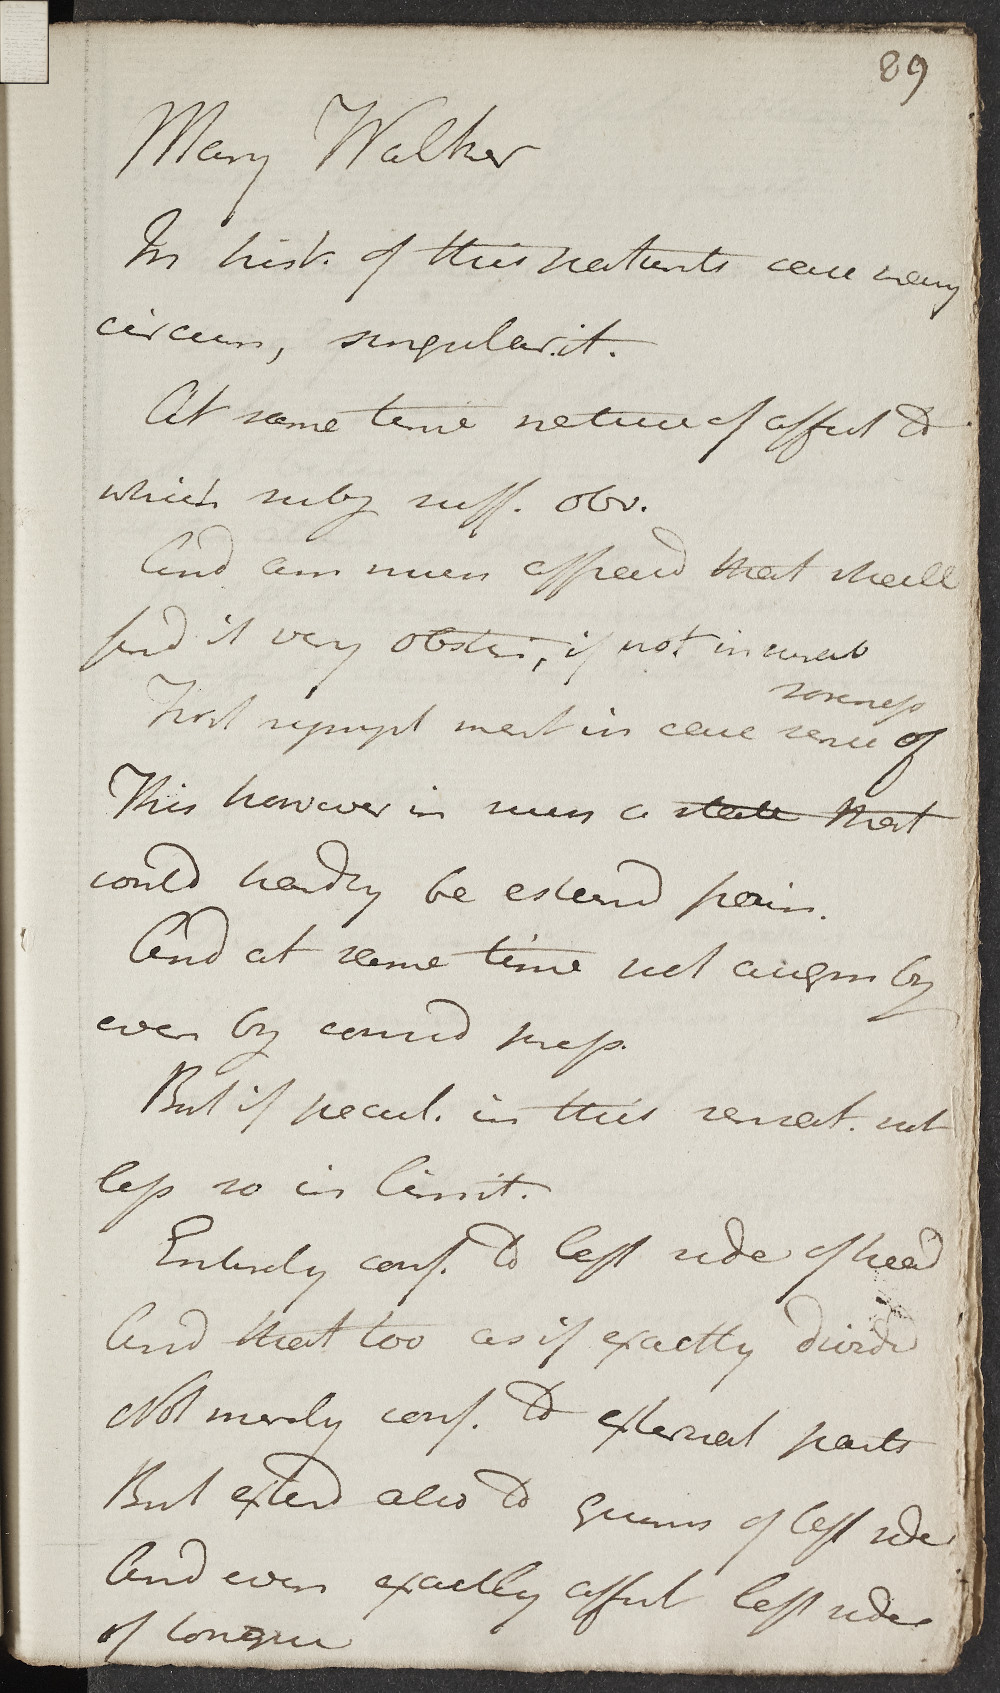 89
Mary Walker
In hist. of this patients case many
circum, singularit.
At same time nature of affect to
which subj suff. obv.
And am much affraid that shall
find it very obstin, if not incurab
soreness
First sympt ment in case sense of
This however in much a state that
could hardly be esteemd pain.
And at same time not augm by
even by consid press.
But if pecul. in this sensat. not
less so in limit.
Entirely conf. to left side of head
And that too as if exactly divid
Not merely conf. to external parts
But extend also to gums of left side
And even exactly affect left side
of tongue